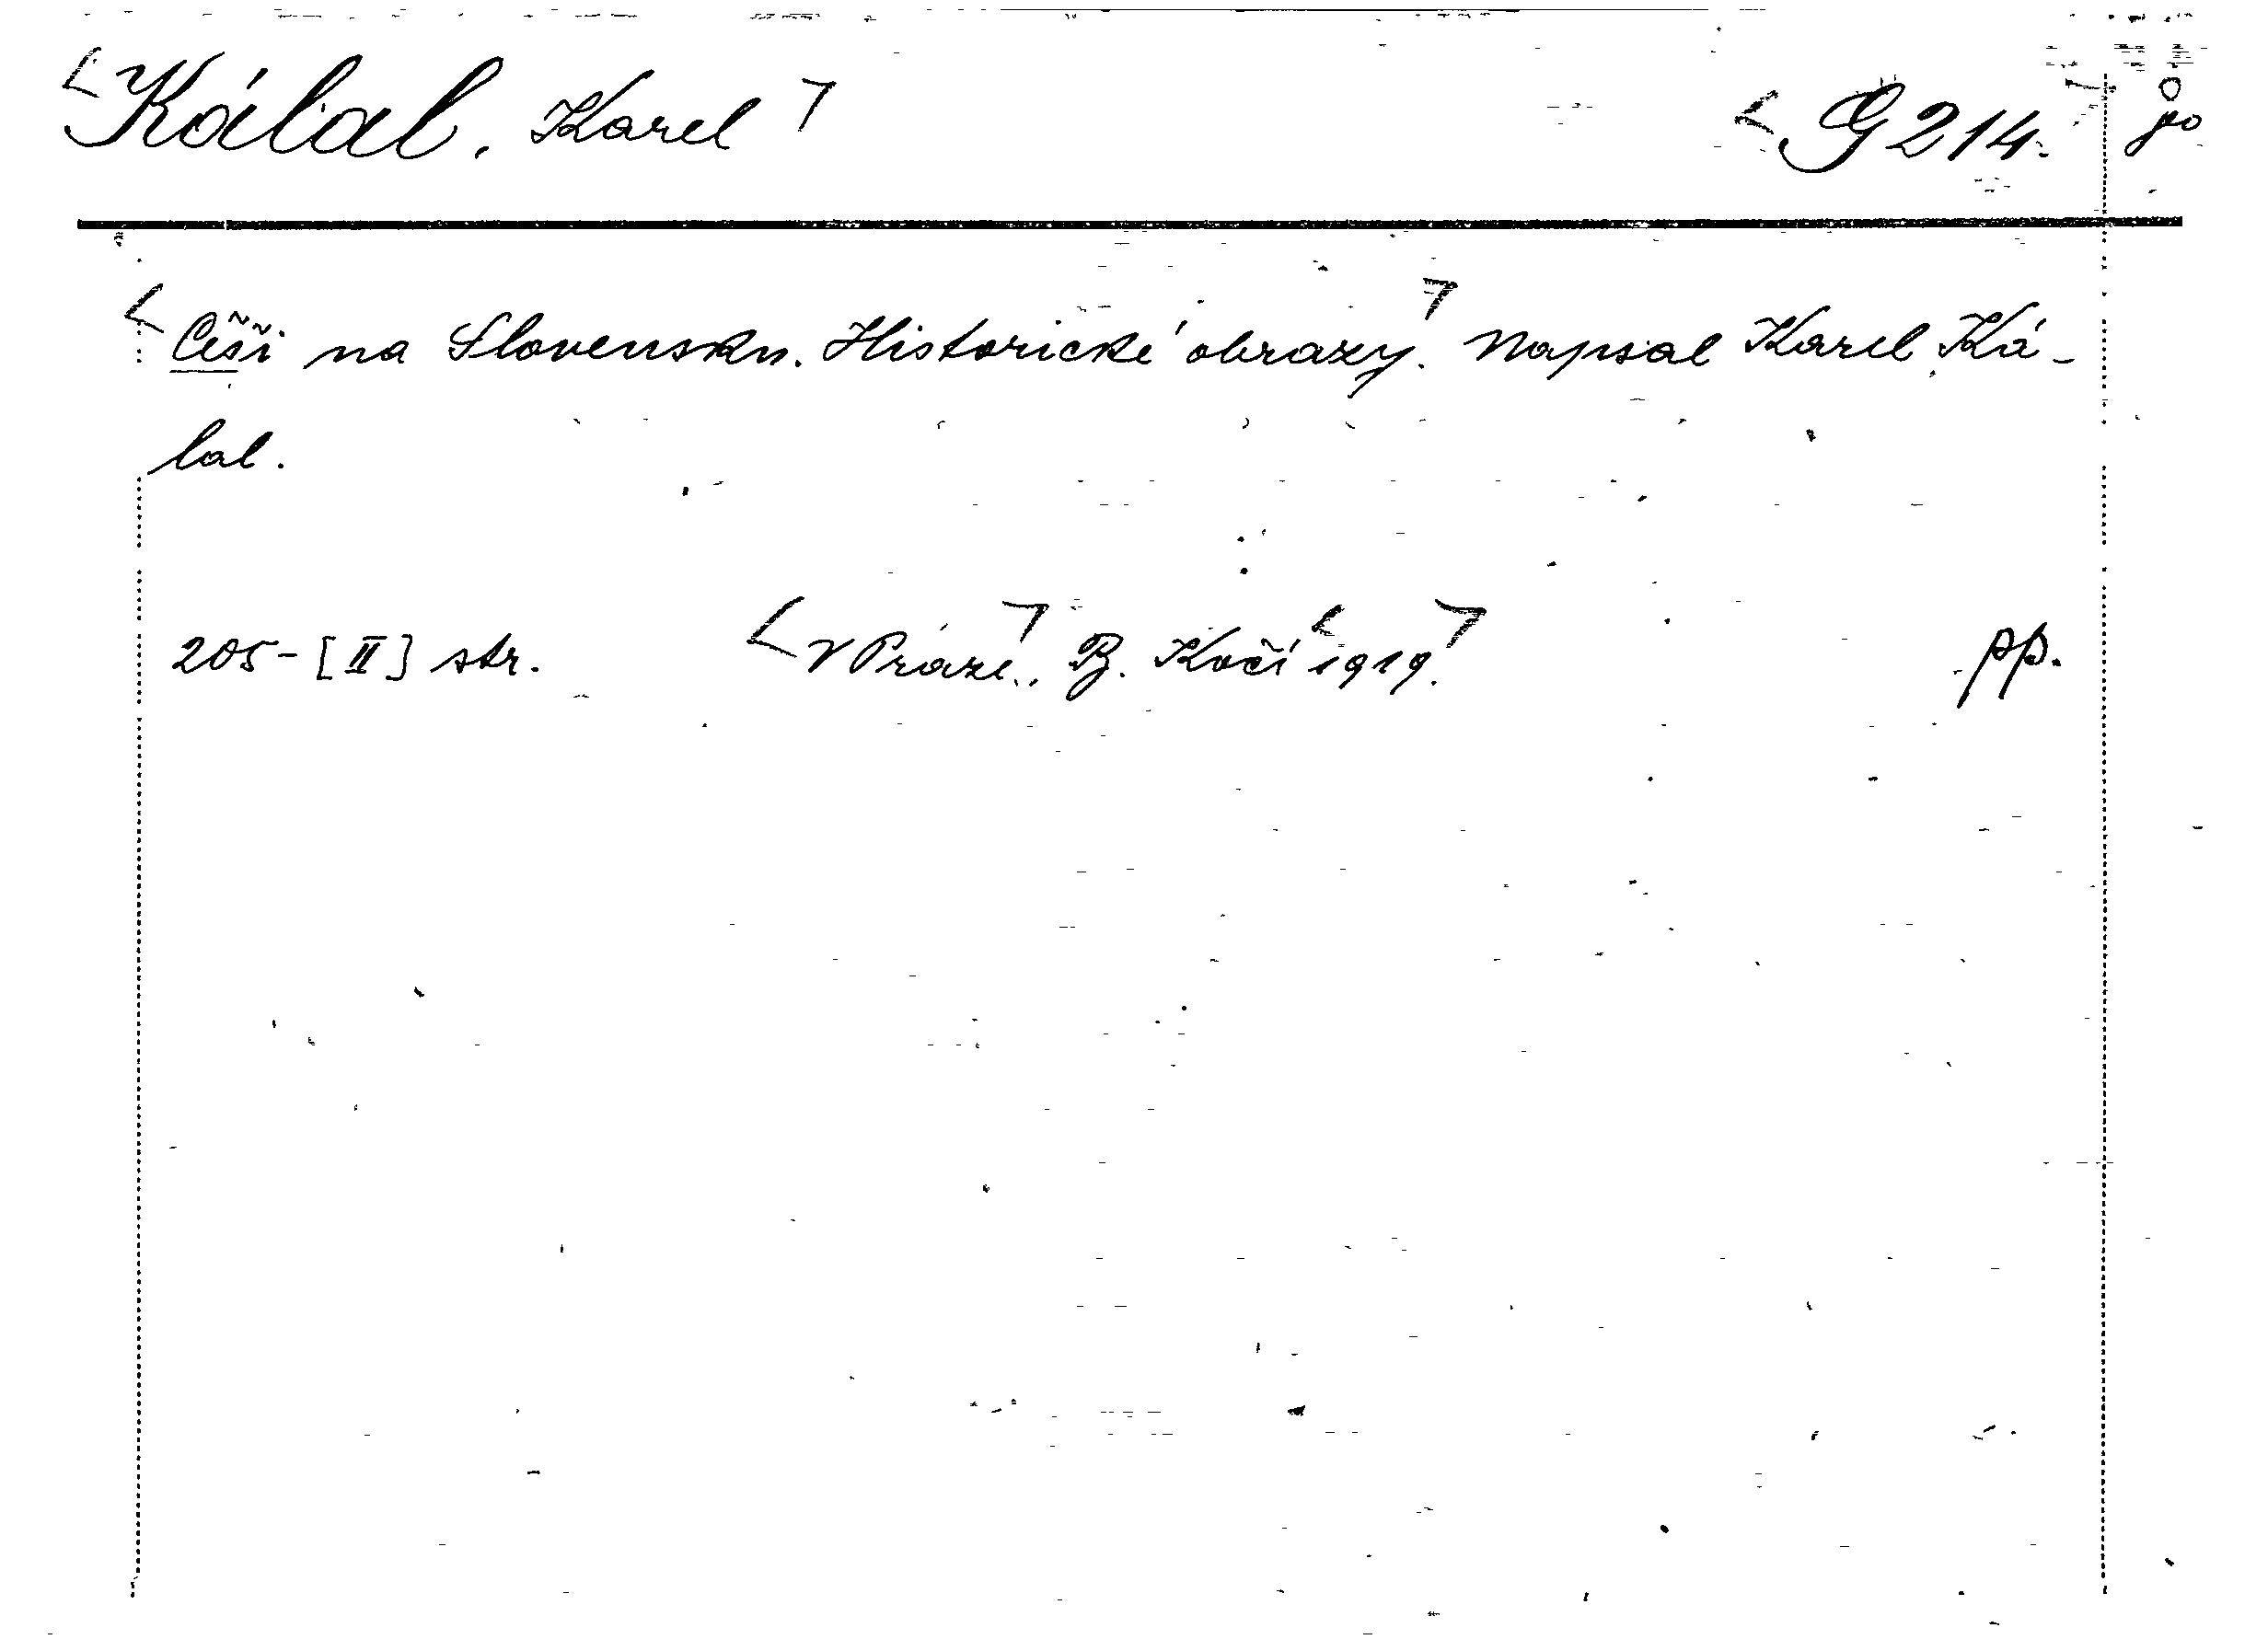 Kálal, Karel G 214. jo
Češi na Slovensku. Historické obrazy. Napsal Karel Ká-
lal.
205-[II] str. V Praze., B. Kočí 1919. pp.